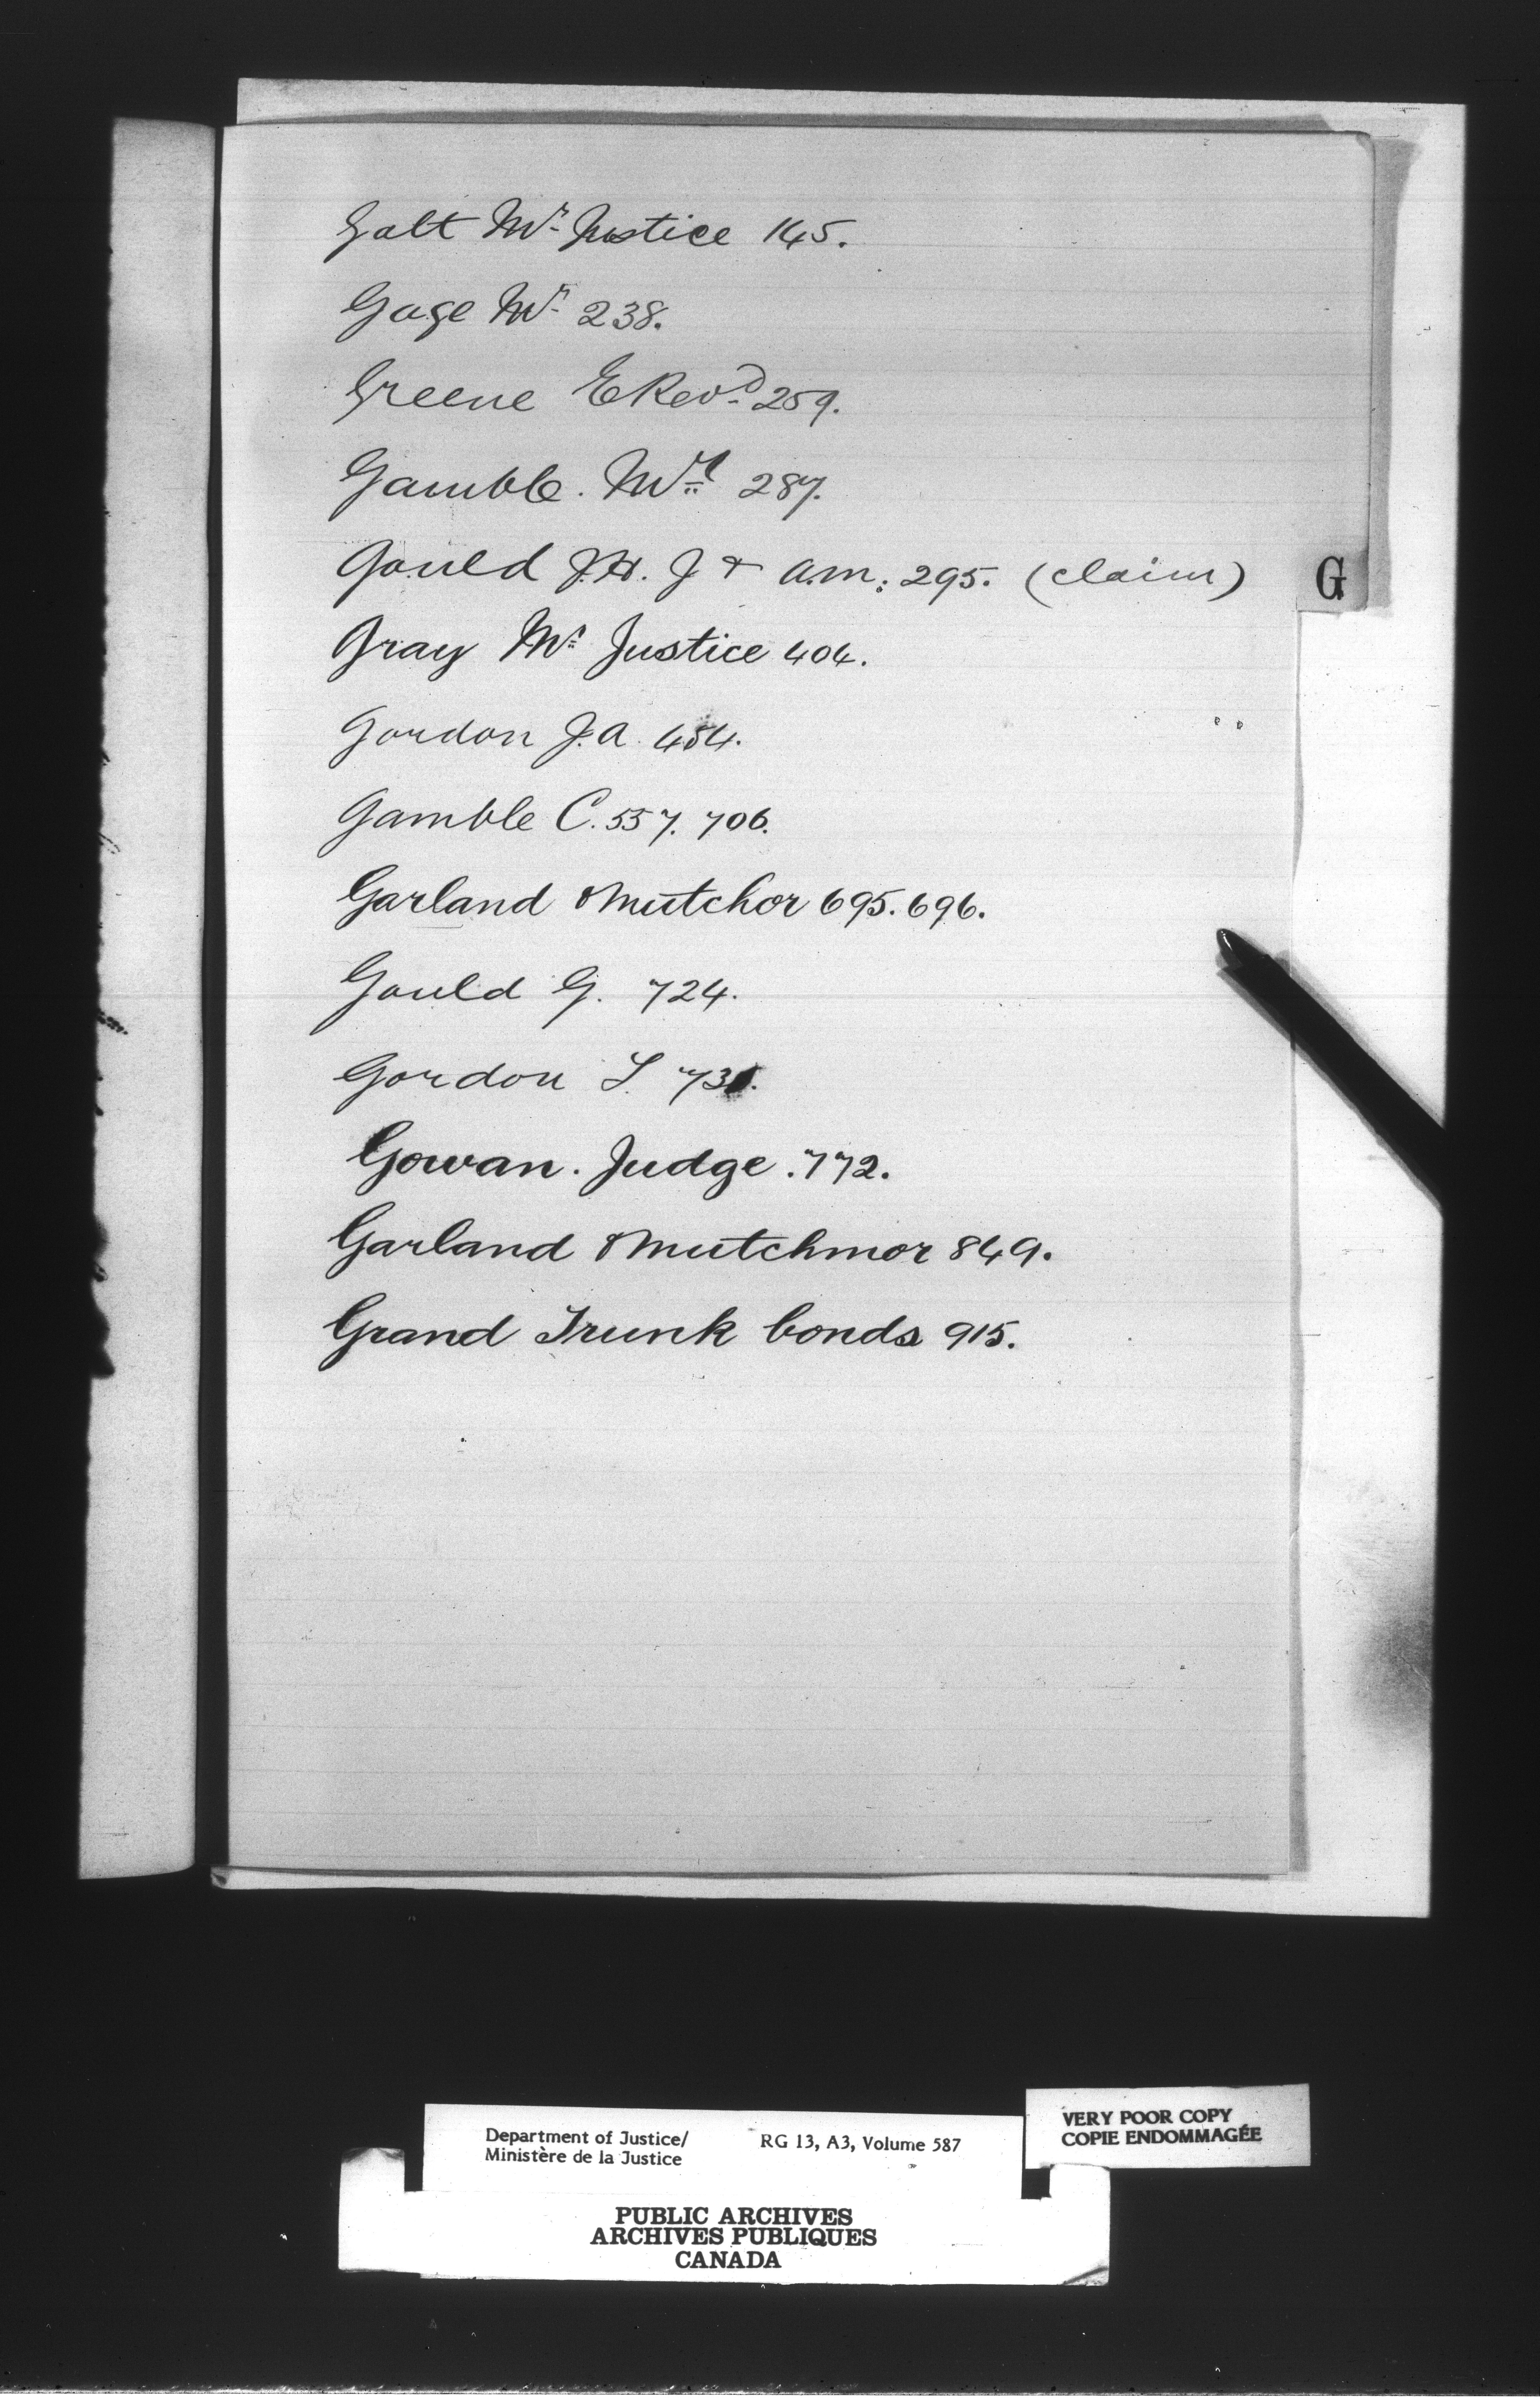 Galt Mr. Justice 145.
Gage Mr. 238.
Greene E Revd. 259.
Gamble. Mr 287.
Gould J.H. J & A.M. 295. (claim)
G
Gray Mr. Justice 404.
Gordon J.A. 454.
Gamble C. 557. 706.
Garland & Mutchor 695. 696.
Gould G. 724.
Gordon L. 731.
Gowan. Judge. 772.
Garland & Mutchmor 849.
Grand Trunk bonds 915.
Department of Justice/ RG 13, A3, Volume 587
Ministère de la Justice
VERY POOR COPY
COPIE ENDOMMAGÉE
PUBLIC ARCHIVES
ARCHIVES PUBLIQUES
CANADA